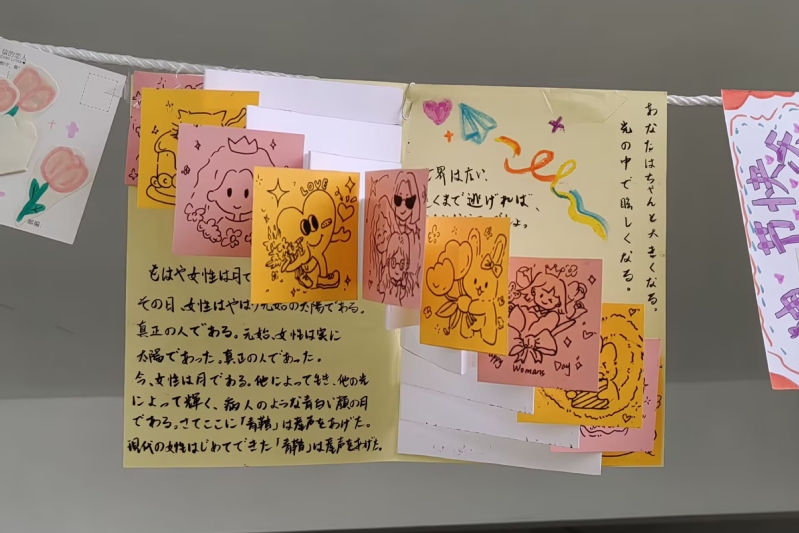 LOVE
もはや女性は月で
その日、女性はやはり元始の太陽である。
真正の人である。元始、女性は実に
太陽であった。真正の人であった。
今、女性は月である。他によって生き、他の光
によって輝く、病人のような青白い顔の月
である。さてここに「青鞜」は産声をあげた。
現代の女性はじめてできた「青鞜」は産声をあげた。
界はたい、
くまで逃げれば、
あなたはちゃんと大きくなる。
光の中で眩しくなる。
Womans Day
快